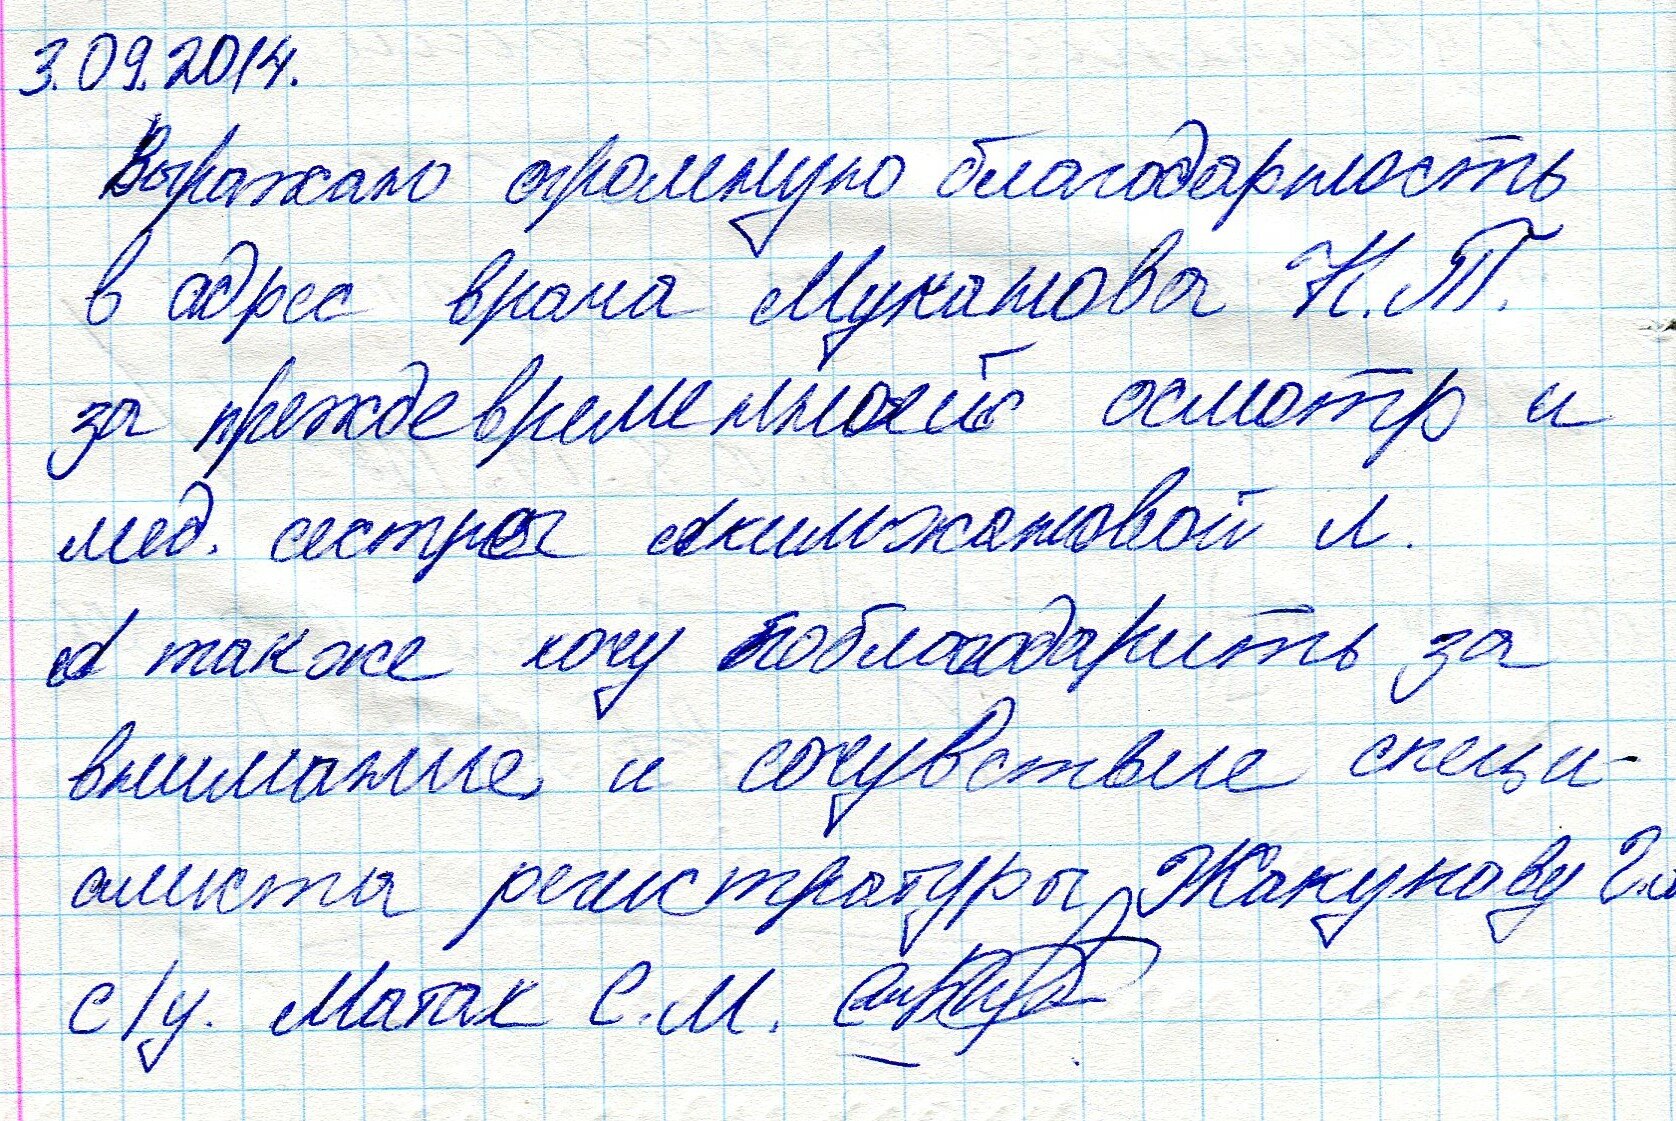 3.09.2014.
Выражаю огромную благодарность
в адрес врача Муканова Н.Т.
за преждевременный осмотр и
мед. сестры Акимжановой Л.
А также хочу поблагодарить за
внимание, и сочувствие специ-
алиста регистратуры Жакунову Г.
с/у. Матак С.М.